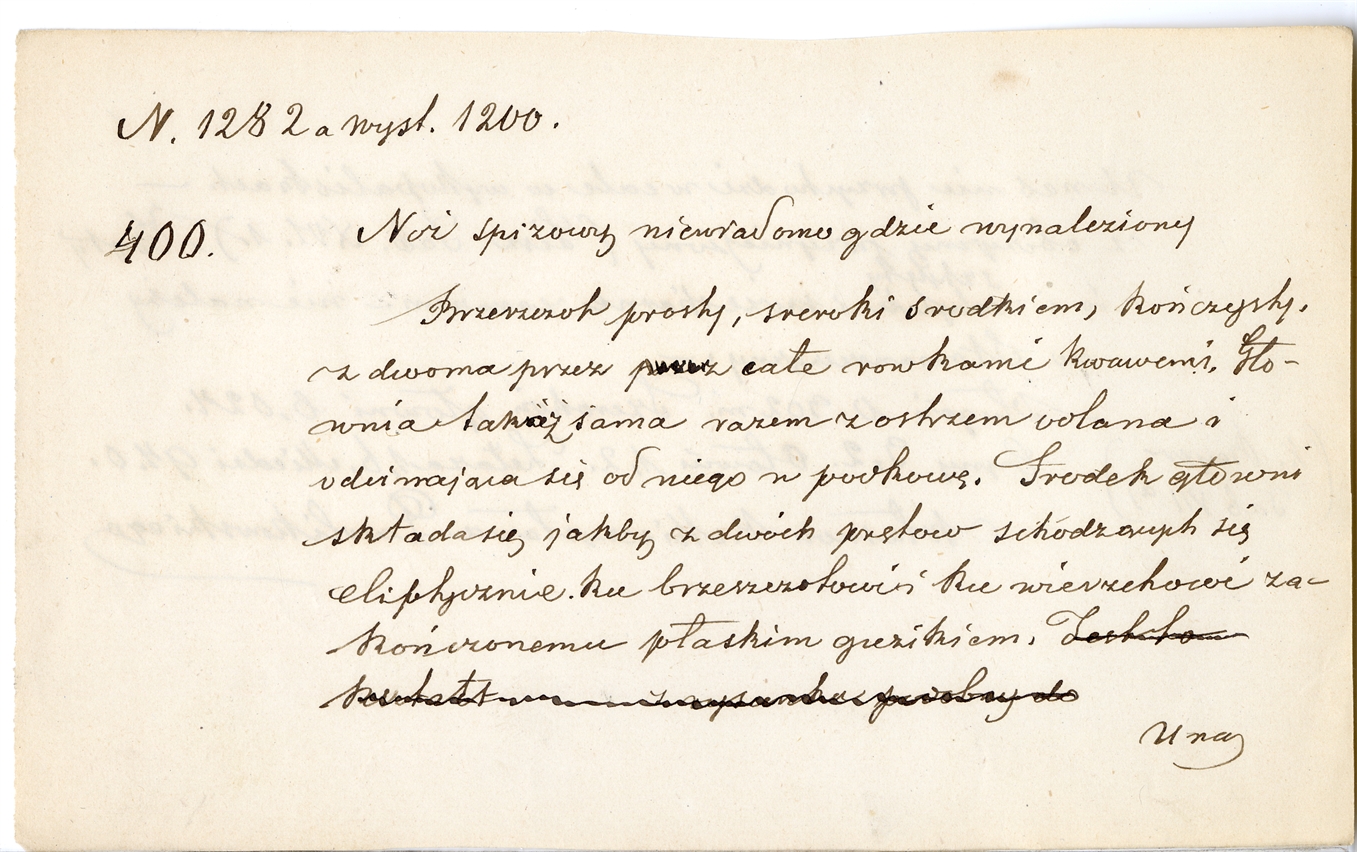 N. 1282 a wyst. 1200.
400. Nóż spizowy niewiadomo gdzie wynaleziony
Brzeszczot prosty, szeroki środkiem, kończysty,
z dwoma przez całe rowkami krwawemi. Gło-
wnia takaż sama razem z ostrzem odlana i
odcinająca się od niego w podkowę. Środek głowni
składa się jakby z dwóch prętów schodzących się
eliptycznie ku brzeszczotowi i ku wierzchowi za-
kończonemu płaskim guzikiem. Jest to
kształt z rysunku podobny do
U nas